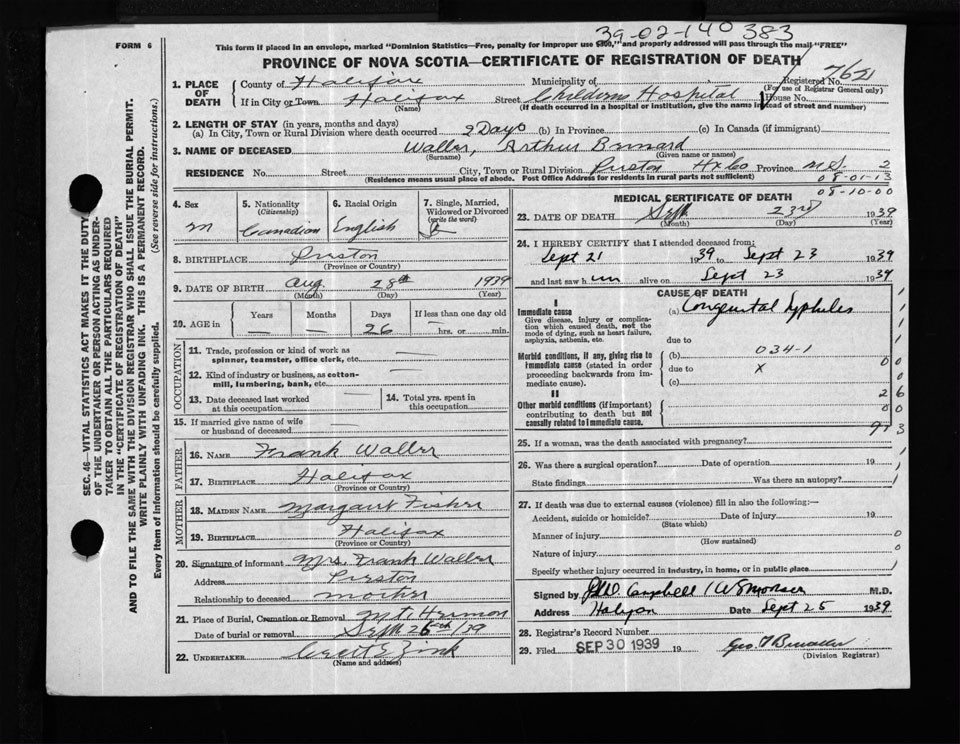 39-02-140383
FORM 6
This form if placed in an envelope, marked "Dominion Statistics—Free, penalty for improper use $300," and properly addressed will pass through the mail "FREE"
PROVINCE OF NOVA SCOTIA—CERTIFICATE OF REGISTRATION OF DEATH
1. PLACE OF DEATH
County of Halifax Municipality of Registered No.
(For use of Registrar General only)
If in City or Town Halifax Street Childrens Hospital House No.
(Name) (If death occurred in a hospital or institution, give the name instead of street and number)
2. LENGTH OF STAY (in years, months and days)
(a) In City, Town or Rural Division where death occurred 2 Days (b) In Province (c) In Canada (if immigrant)
3. NAME OF DECEASED Waller, Arthur Bernard
(Surname) (Given name or names)
RESIDENCE No. Street City, Town or Rural Division Preston Hx Co Province N.S. 2
(Residence means usual place of abode. Post Office Address for residents in rural parts not sufficient) 08-01-13
08-10-00
4. Sex
M
5. Nationality
(Citizenship)
Canadian
6. Racial Origin
English
7. Single, Married, Widowed or Divorced
(write the word)
S
8. BIRTHPLACE Preston
(Province or Country)
9. DATE OF BIRTH Aug. 28th 1939
(Month) (Day) (Year)
10. AGE in Years Months Days If less than one day old
— — 26 — hrs. or min.
OCCUPATION
11. Trade, profession or kind of work as spinner, teamster, office clerk, etc. —
12. Kind of industry or business, as cotton-mill, lumbering, bank, etc. —
13. Date deceased last worked at this occupation
14. Total yrs. spent in this occupation
15. If married give name of wife or husband of deceased
FATHER
16. NAME Frank Waller
17. BIRTHPLACE Halifax
(Province or Country)
MOTHER
18. MAIDEN NAME Margaret Fisher
19. BIRTHPLACE Halifax
(Province or Country)
20. Signature of informant Mrs. Frank Waller
Address Preston
Relationship to deceased mother
21. Place of Burial, Cremation or Removal Mt. Hermon
Date of burial or removal Sept 26th/39
22. UNDERTAKER Zink
(Name and address)
MEDICAL CERTIFICATE OF DEATH
23. DATE OF DEATH Sept. 23rd 1939
(Month) (Day) (Year)
24. I HEREBY CERTIFY that I attended deceased from:
Sept 21 1939 to Sept 23 1939
and last saw h im alive on Sept 23 1939
CAUSE OF DEATH
I
Immediate cause
Give disease, injury or complication which caused death, not the mode of dying, such as heart failure, asphyxia, asthenia, etc.
(a) Congenital Syphilis
due to
Morbid conditions, if any, giving rise to immediate cause (stated in order proceeding backwards from immediate cause).
(b) 034-1
due to X
(c)
II
Other morbid conditions (if important) contributing to death but not causally related to immediate cause.
1
0
0
2 6
0 0
25. If a woman, was the death associated with pregnancy?
26. Was there a surgical operation? Date of operation 19
State findings Was there an autopsy?
27. If death was due to external causes (violence) fill in also the following:—
Accident, suicide or homicide? Date of injury 19
(State which)
Manner of injury 0
(How sustained)
Nature of injury 0
Specify whether injury occurred in industry, in home, or in public place
Signed by Campbell / M.D.
Address Halifax Date Sept 25 1939
28. Registrar's Record Number
29. Filed SEP 30 1939 19
(Division Registrar)
SEC. 46—VITAL STATISTICS ACT MAKES IT THE DUTY OF THE UNDERTAKER OR PERSON ACTING AS UNDERTAKER TO OBTAIN ALL THE PARTICULARS REQUIRED IN THE "CERTIFICATE OF REGISTRATION OF DEATH" AND TO FILE THE SAME WITH THE DIVISION REGISTRAR WHO SHALL ISSUE THE BURIAL PERMIT.
WRITE PLAINLY WITH UNFADING INK. THIS IS A PERMANENT RECORD.
Every item of information should be carefully supplied. (See reverse side for instructions.)